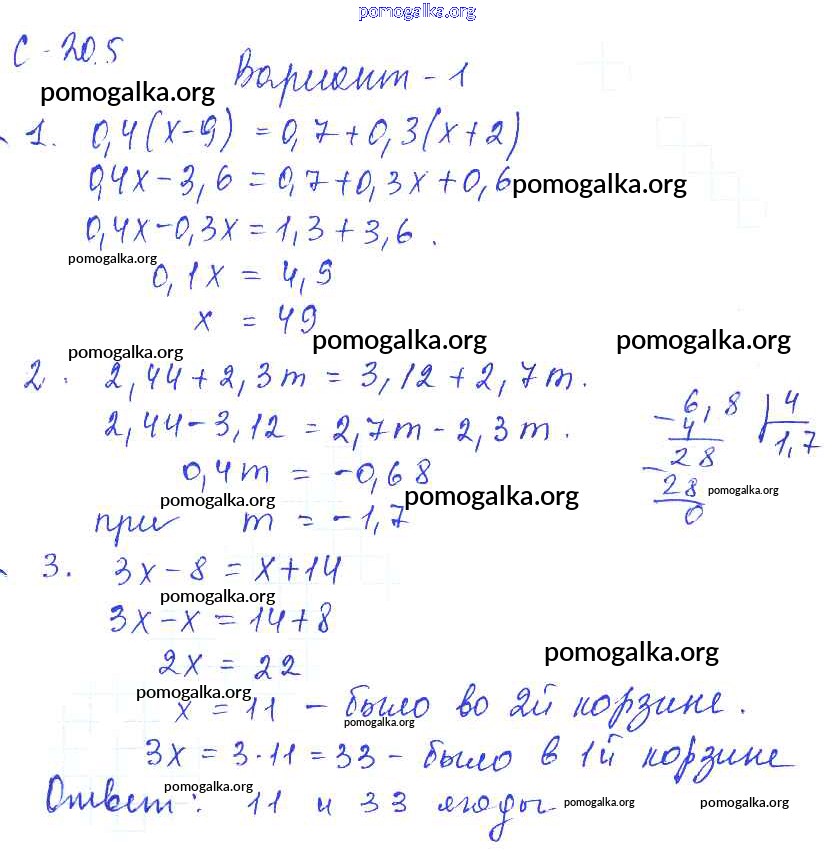 pomogalka.org
С-20.5
Вариант-1
pomogalka.org
1. 0,4(x-9) = 0,7+0,3(x+2)
0,4x-3,6 = 0,7+0,3x+0,6 pomogalka.org
0,4x-0,3x = 1,3+3,6.
pomogalka.org
0,1x = 4,9
x = 49
pomogalka.org pomogalka.org pomogalka.org
2. 2,44+2,3m = 3,12+2,7m.
2,44-3,12 = 2,7m-2,3m.
0,4m = -0,68
pomogalka.org pomogalka.org
при m = -1,7
- 6,8 | 4
4 1,7
- 28
28 pomogalka.org
0
3. 3x-8 = x+14
pomogalka.org
3x-x = 14+8
2x = 22 pomogalka.org
pomogalka.org
x = 11 - было во 2й корзине.
pomogalka.org
3x = 3·11 = 33 - было в 1й корзине
pomogalka.org
Ответ: 11 и 33 ягоды pomogalka.org pomogalka.org